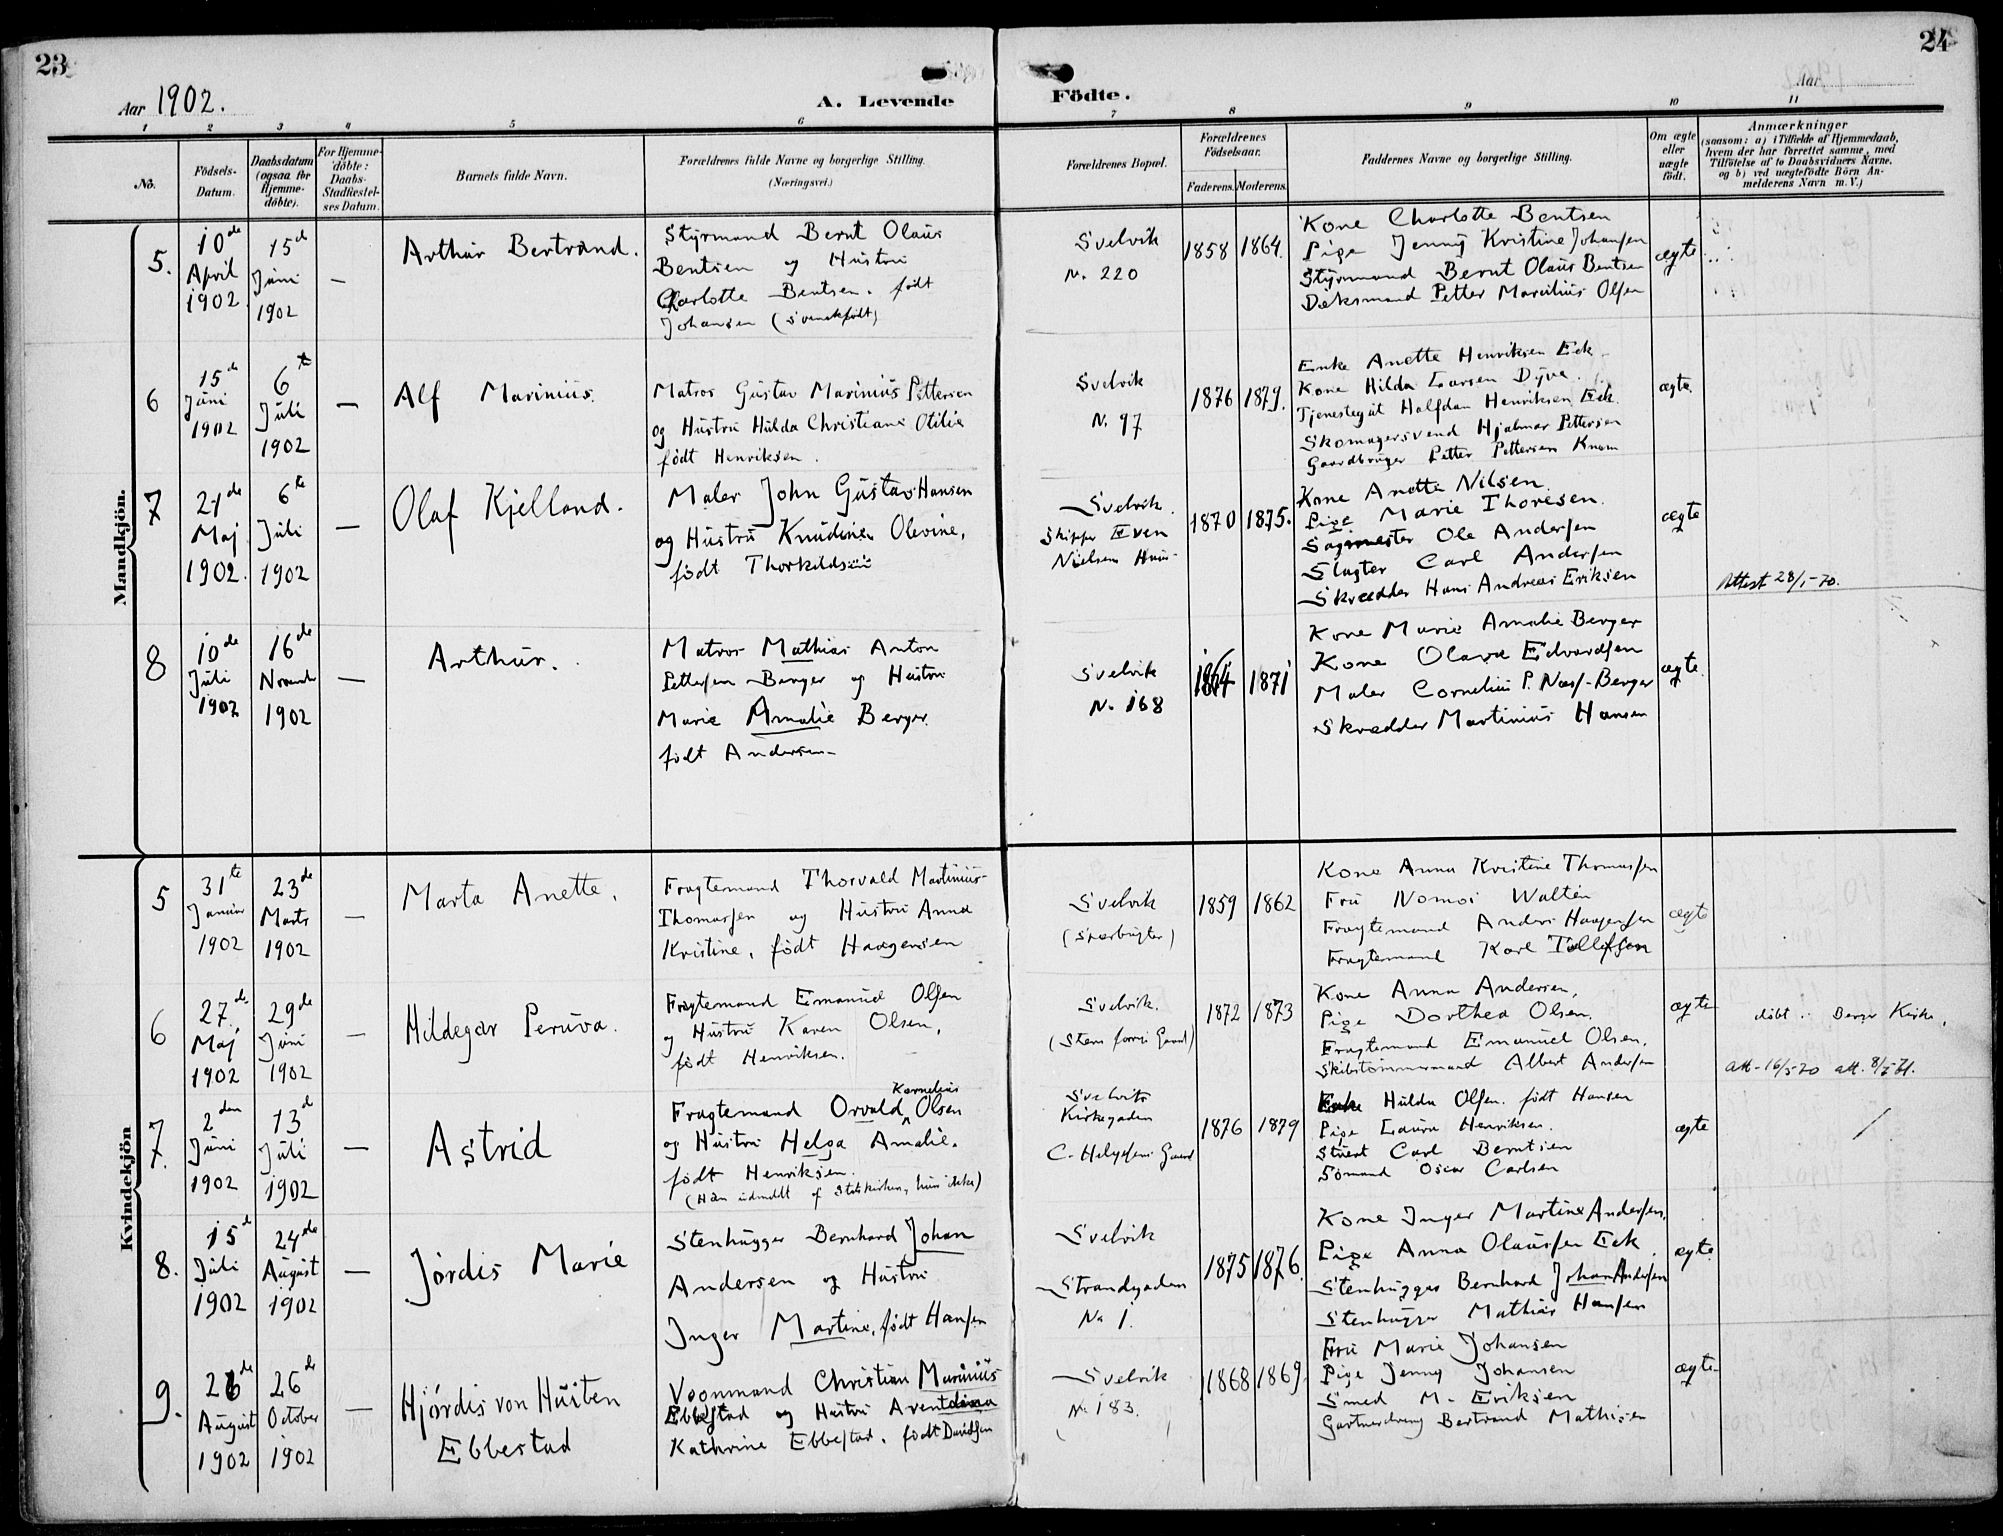 23
24
Aar 1902.
A. Levende Födte.
Aar
1 2 3 4 5 6 7 8 9 10 11
No.
Födsels-Datum.
Daabsdatum (ogsaa for Hjemme-döbte).
For Hjemme-döbte: Daabs-Stadfæstel-ses Datum.
Barnets fulde Navn.
Forældrenes fulde Navne og borgerlige Stilling.
(Næringsvei.)
Forældrenes Bopæl.
Forældrenes Födselsaar.
Faderens. Moderens.
Faddernes Navne og borgerlige Stilling.
Om ægte eller uægte födt.
Anmærkninger
(saasom: a) i Tilfælde af Hjemmedaab, hvem der har forrettet samme, med Tilföielse af to Daabsvidners Navne, og b) ved uægtefödte Börn An-melderens Navn m. V.)
Mandkjön.
5.
10de April 1902.
15de Juni 1902
—
Arthur Bertrand.
Styrmand Bernt Olaus
Bentsen og Hustru
Charlotte Bentsen. født
Johansen (svenskfødt)
Svelvik
N. 220
1858 1864.
Kone Charlotte Bentsen
Pige Jenny Kristine Johansen
Styrmand Bernt Olaus Bentsen
Dæksmand Petter Marcilius Olsen
ægte
6
15de Juni 1902
6te Juli 1902
—
Alf Marinius.
Matros Gustav Marinius Pettersen
og Hustru Hulda Christiane Otilie
født Henriksen.
Svelvik
N. 97
1876 1879.
Enke Anette Henriksen Eck
Kone Hilda Larsen Dyve.
Tjenestegut Halfdan Henriksen Eck.
Skomagersvend Hjalmar Pettersen
Gaardbruger Petter Pettersen Knem
ægte
7
21de Maj 1902.
6te Juli 1902
—
Olaf Kjelland.
Maler John Gustav Hansen
og Hustru Knudine Olevine,
født Thorkildsen
Svelvik.
Skipper Even
Nielsens Huus
1870 1875.
Kone Anette Nilsen.
Pige Marie Thoresen.
Sagmester Ole Andersen
Slagter Carl Andersen
Skrædder Hans Andreas Eriksen
ægte
Attest 28/1-70.
8
10de Juli 1902
16de Novemb 1902
—
Arthur.
Matros Mathias Anton
Pettersen Berger og Hustru
Marie Amalie Berger.
født Andersen
Svelvik
N. 168
1864 1871
Kone Marie Amalie Berger
Kone Olava Edvardsen
Maler Cornelius P. Næss-Berger
Skrædder Martinius Hansen
ægte.
Kvindekjön
5
31te Januar 1902
23de Marts 1902
—
Marta Anette.
Fragtemand Thorvald Martinius
Thomassen og Hustru Anna
Kristine, født Haagensen
Svelvik
(Stærbugten)
1859 1862
Kone Anna Kristine Thomassen
Fru Nomoi Waltin
Fragtemand Anders Haagensen
Fragtemand Karl Tollefsen
ægte
6
27de Maj 1902
29de Juni 1902
—
Hildegar Peruva.
Fragtemand Emanuel Olsen
og Hustru Karen Olsen,
født Henriksen.
Svelvik.
1872 1873
Kone Anna Andersen,
Pige Dorthea Olsen.
Fragtemand Emanuel Olsen.
Skibstømmermand Albert Andersen
ægte
døbt i Berger Kirke.
att. 16/5-70 att. 8/5-71.
7.
2den Juni 1902
13de Juli 1902
—
Astrid
Fragtemand Osvald Kornelius Olsen
og Hustru Helga Amalie.
født Henriksen.
(Han udmeldt af Statskirken, hun ikke)
Svelvik
Kirkegaden
C. Helgesens Gaard
1876 1879
Hulda Olsen. født Hansen
Pige Laura Henriksen.
Stuert Carl Berntsen
Sømand Oscar Carlsen
ægte
8.
15de Juli 1902
24de August 1902
—
Jørdis Marie
Stenhugger Bernhard Johan
Andersen og Hustru
Inger Martine, født Hansen
Svelvik
Strandgaden
No 1.
1875 1876.
Kone Inger Martine Andersen.
Pige Anna Olaussen Eck.
Stenhugger Bernhard Johan Andersen
Stenhugger Mathias Hansen
ægte
9.
26de August 1902
26de October 1902
—
Hjørdis von Husten
Ebbestad
Vognmand Christian Marinius
Ebbestad og Hustru Aventdina
Kathrine Ebbestad. født Davidsen
Svelvik
N. 183.
1868 1869
Fru Marie Johansen
Pige Jenny Johansen
Smed M. Eriksen
Gartnerdreng Bertrand Mathisen
ægte